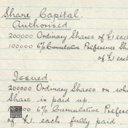 Share Capital
Authorised
200000 Ordinary Shares of £1 eac
100000 6% Cumulative Preference Sha
of £1 eac
Issued
200000 Ordinary Shares on wh
Share is paid up.
6% Cumulative Preferenc
of £1 each fully paid